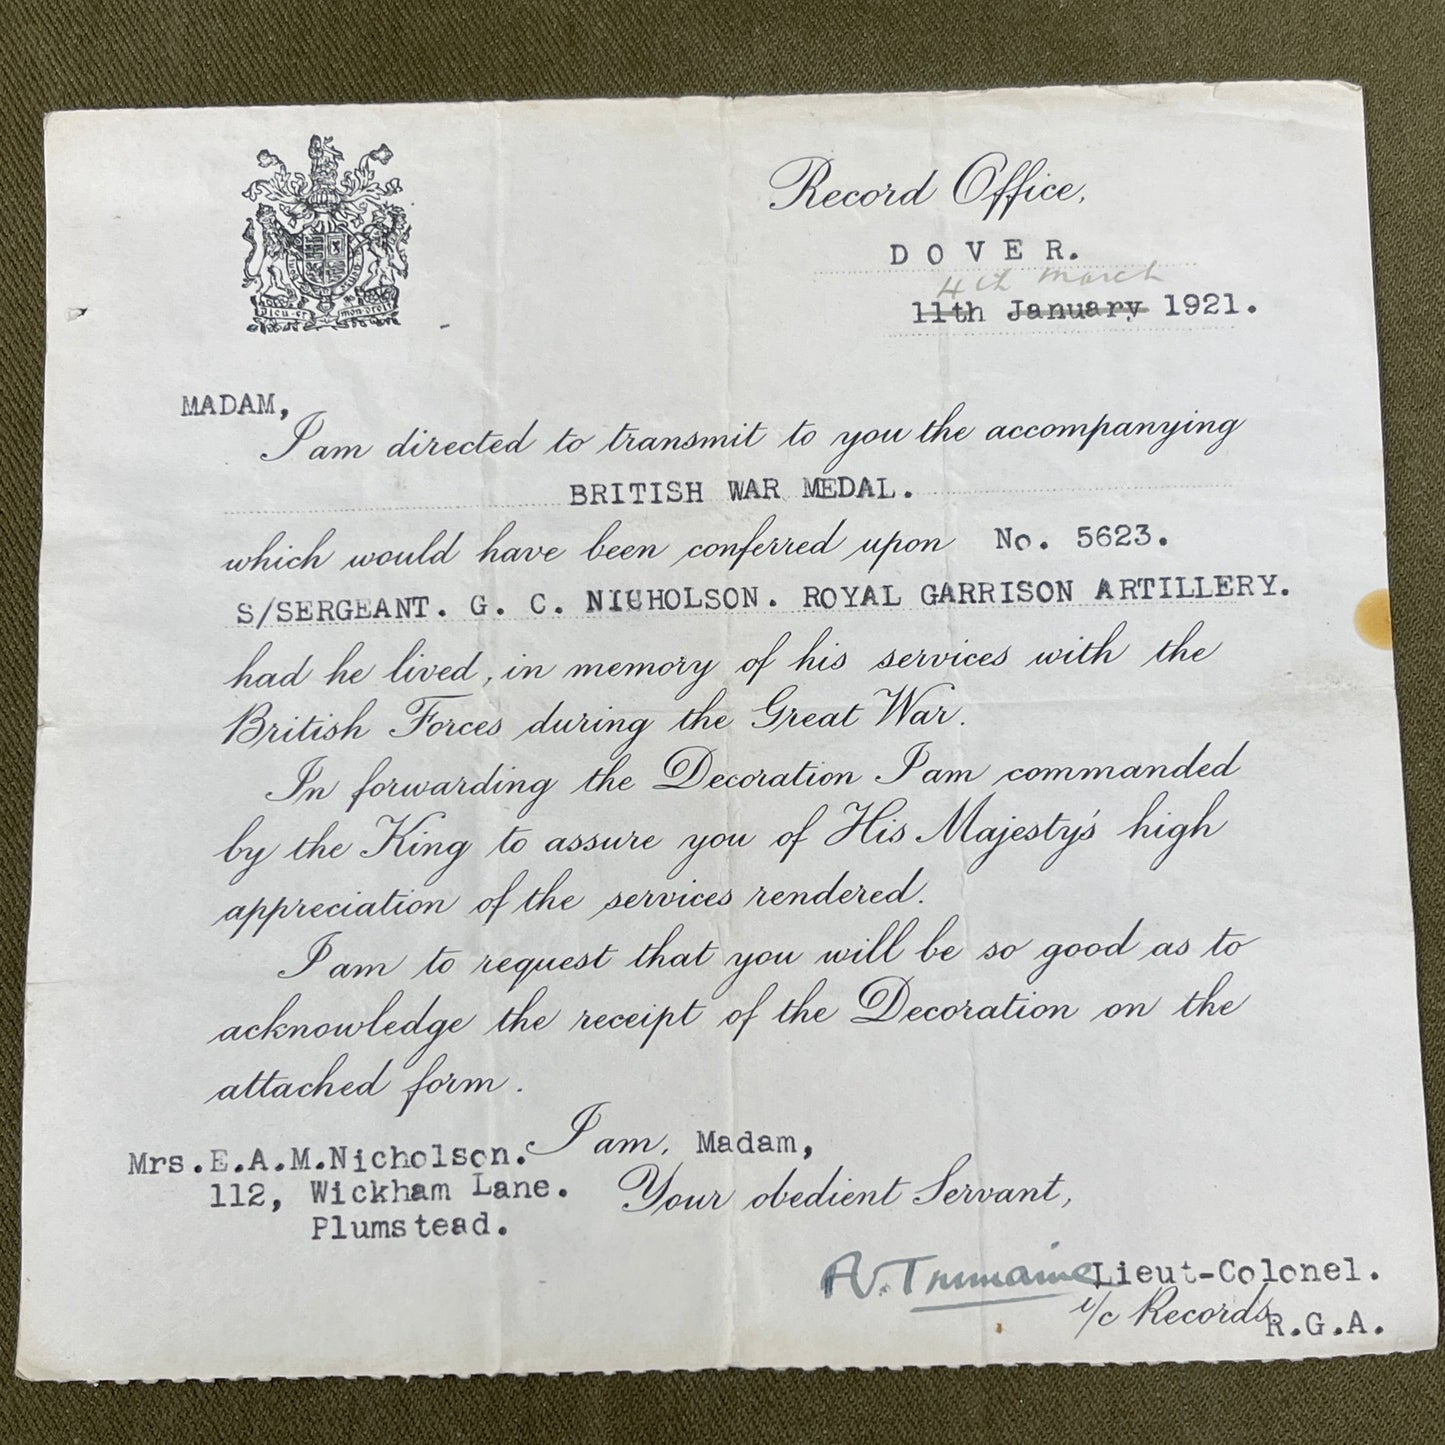 Dieu et mon droit
Record Office,
DOVER.
4th March
11th January 1921.
MADAM,
I am directed to transmit to you the accompanying
BRITISH WAR MEDAL.
which would have been conferred upon No. 5623.
S/SERGEANT. G. C. NICHOLSON. ROYAL GARRISON ARTILLERY.
had he lived, in memory of his services with the
British Forces during the Great War.
In forwarding the Decoration I am commanded
by the King to assure you of His Majesty's high
appreciation of the services rendered.
I am to request that you will be so good as to
acknowledge the receipt of the Decoration on the
attached form.
I am, Madam,
Your obedient Servant,
Mrs.E.A.M.Nicholson.
112, Wickham Lane.
Plumstead.
Lieut-Colonel.
i/c Records R.G.A.